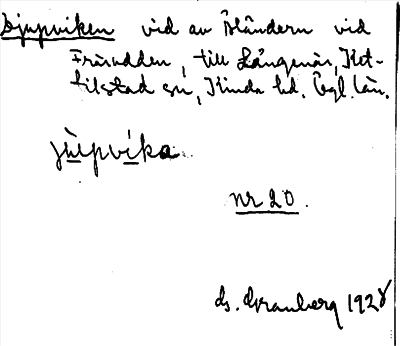 Djupviken vid av Åländern vid
Fräsudden, till Långenäs, Ket-
tilstad sn, Kinda hd. Ögl. län.
jùpvíka
nr 20.
G. Granberg 1928